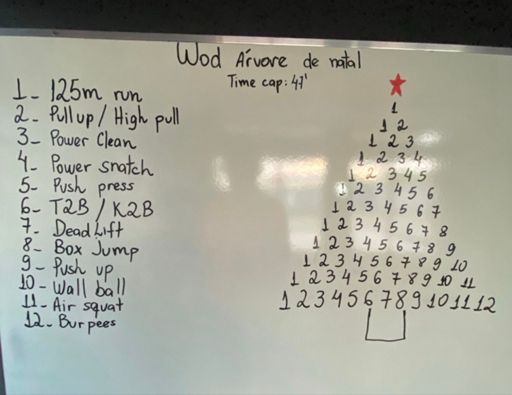 Wod Árvore de natal
Time cap: 47'
1- 125m run
2- Pull up / High pull
3- Power Clean
4- Power snatch
5- Push press
6- T2B / K2B
7- Deadlift
8- Box Jump
9- Push up
10- Wall ball
11- Air squat
12- Burpees
1
1 2
1 2 3
1 2 3 4
1 2 3 4 5
1 2 3 4 5 6
1 2 3 4 5 6 7
1 2 3 4 5 6 7 8
1 2 3 4 5 6 7 8 9
1 2 3 4 5 6 7 8 9 10
1 2 3 4 5 6 7 8 9 10 11
1 2 3 4 5 6 7 8 9 10 11 12